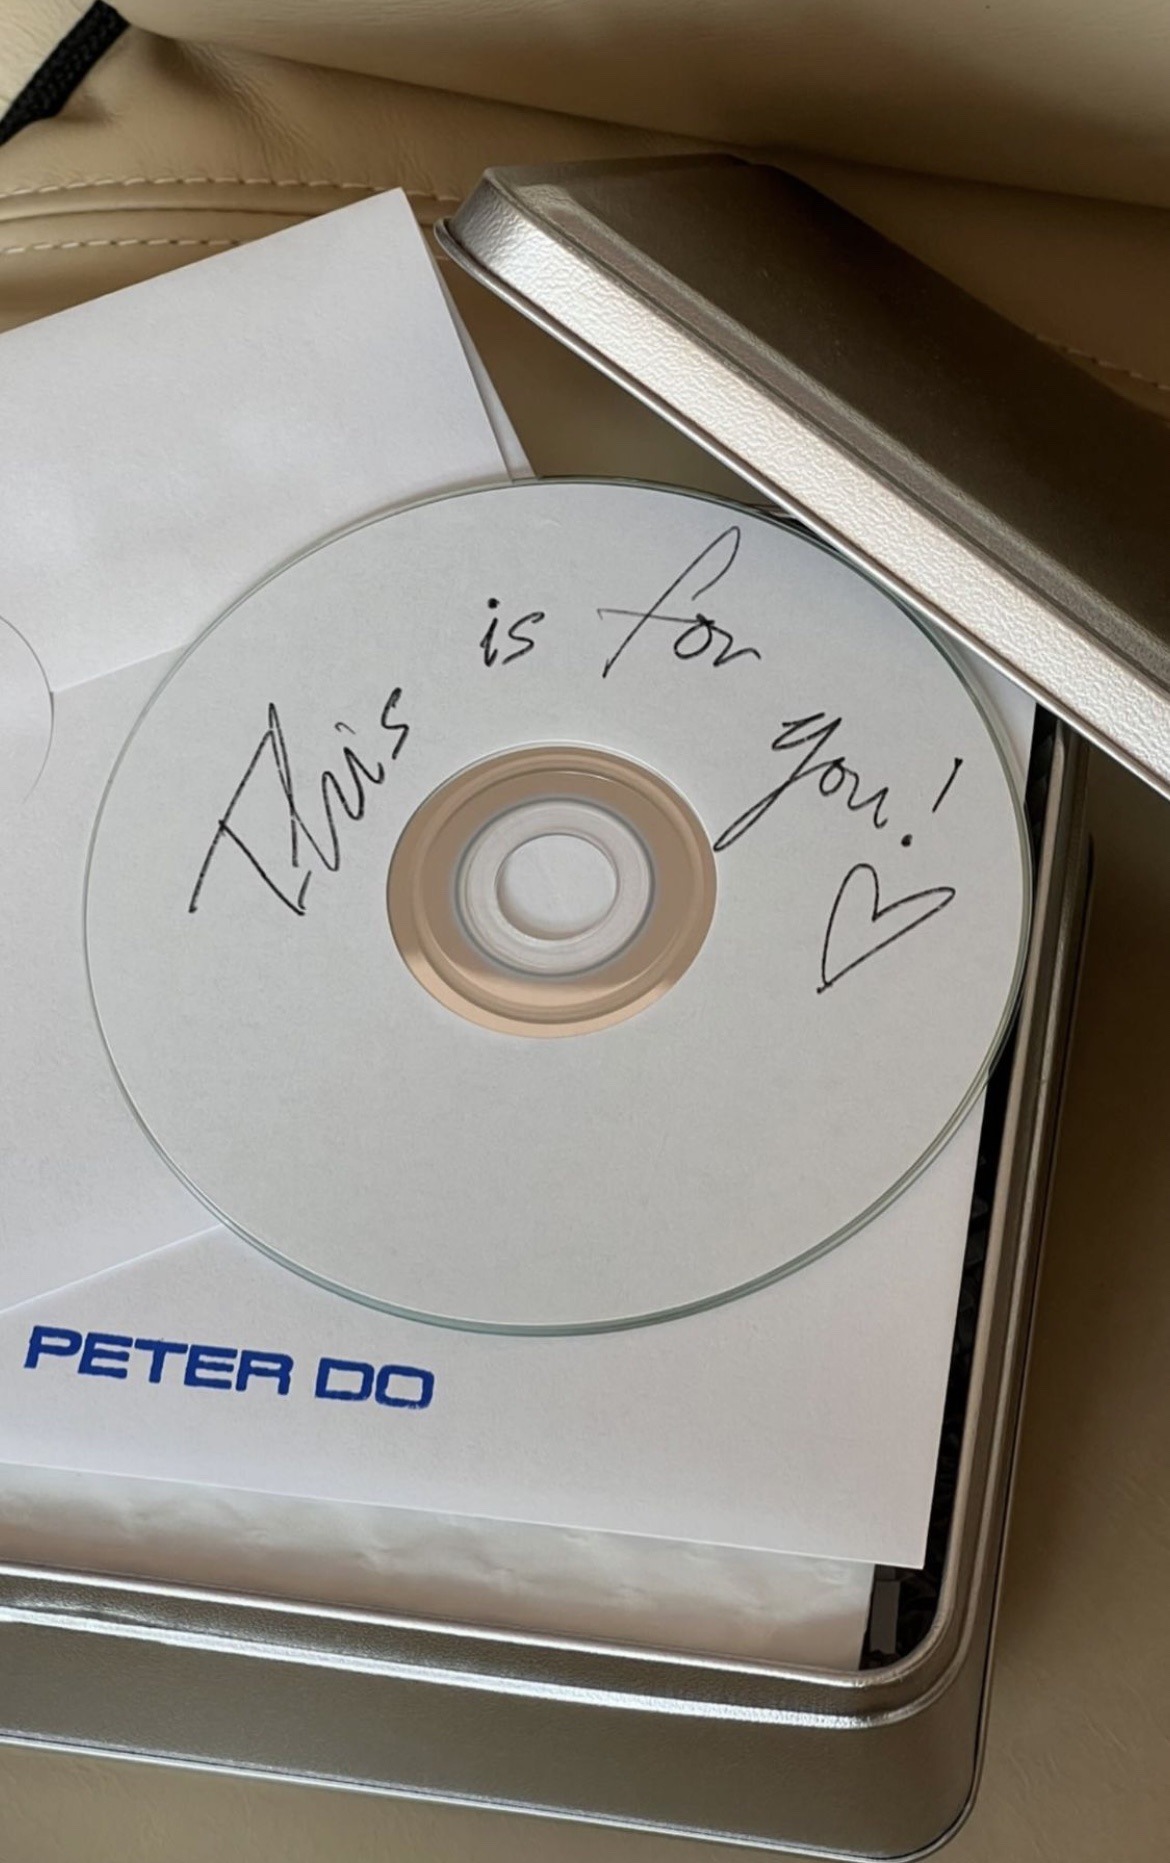 This is for you! ♡
PETER DO